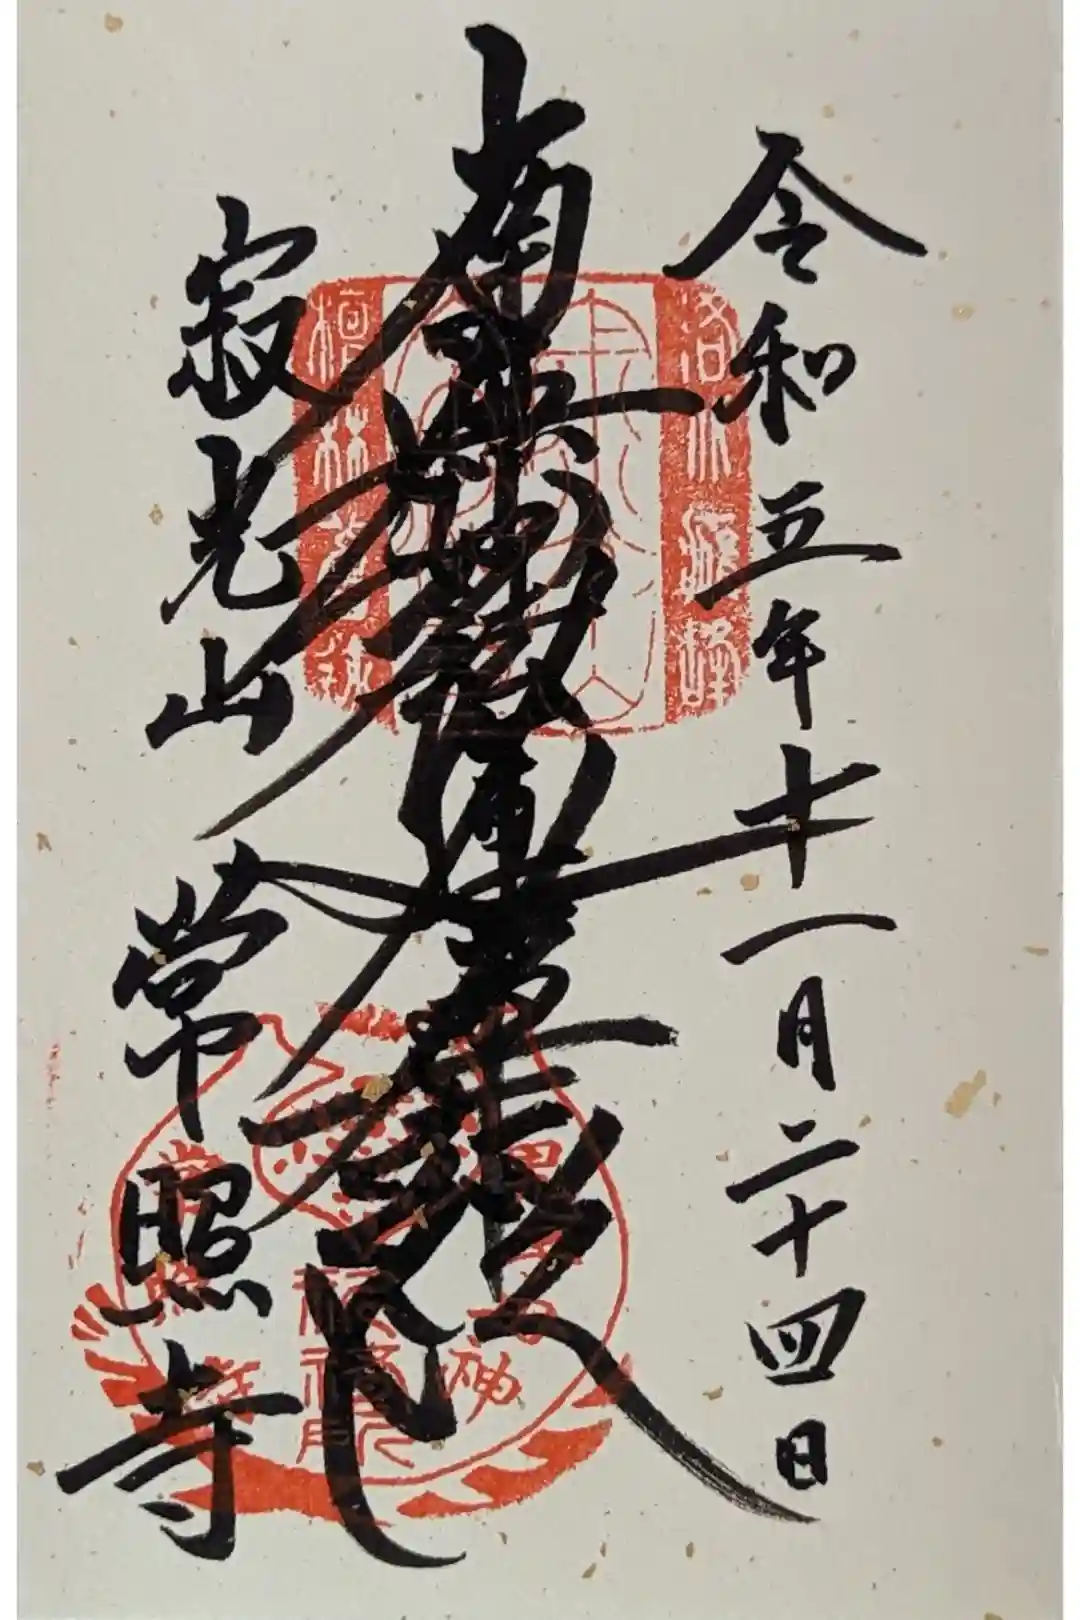 令和五年十一月二十四日
洛北鷹峰
南無妙法蓮華経
寂光山 常照寺